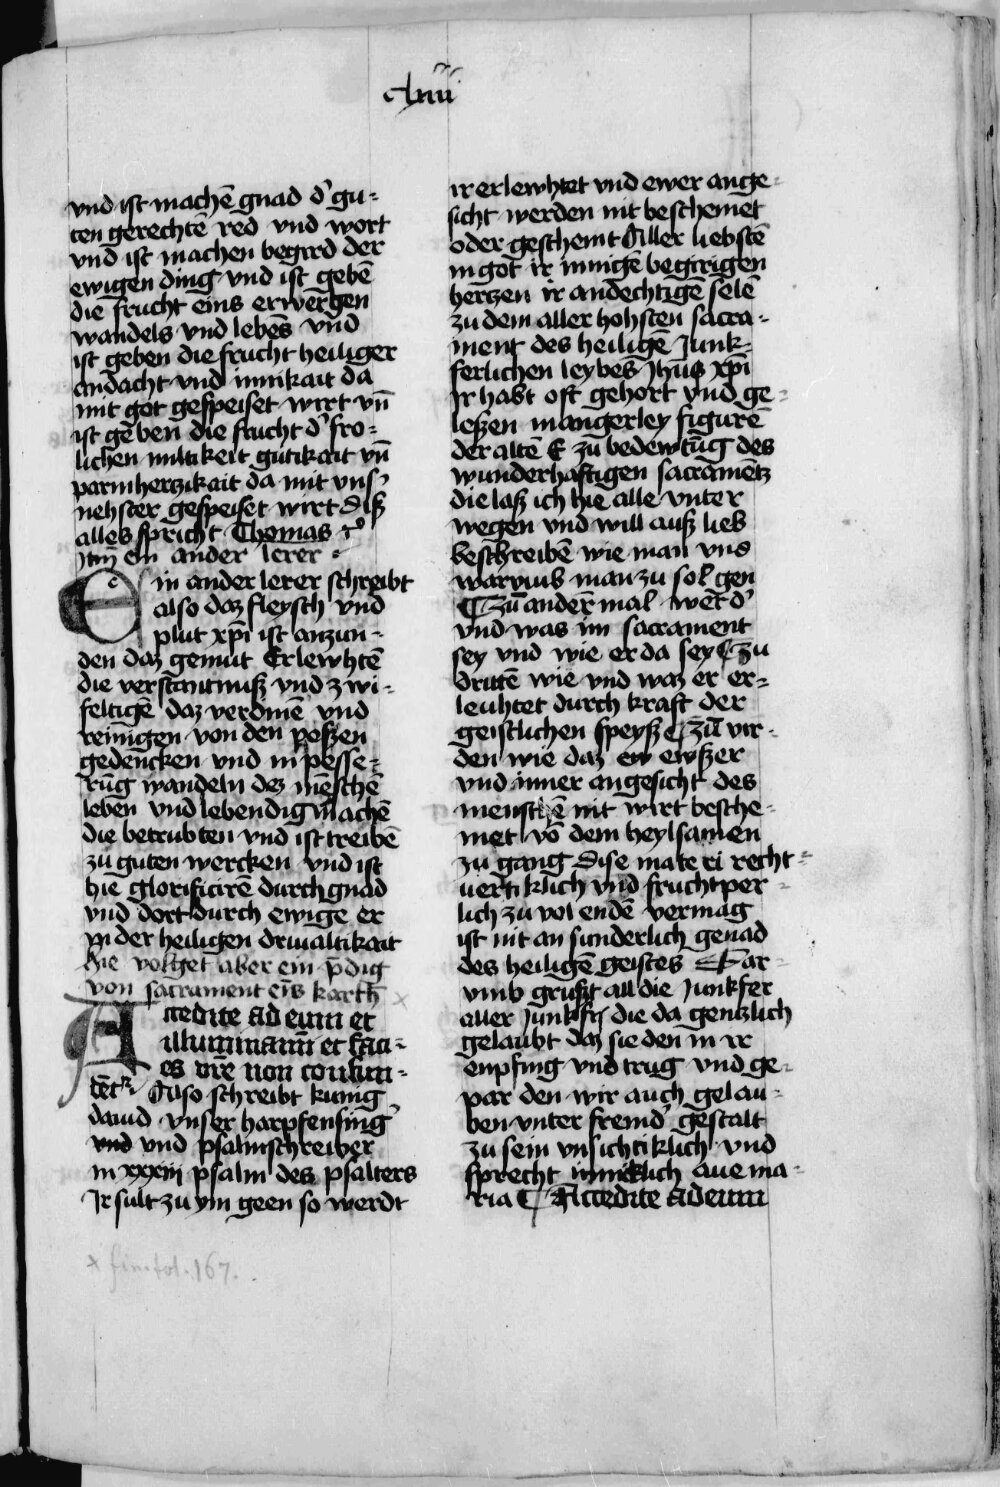 clxiiii
vnd ist machē gnad d᷑ gu⸗
ten gerechtē red vnd wort
vnd ist machen begird der
ewigen ding vnd ist gebē
die frucht eins erwergen
wandels vnd lebēs vnd
ist geben die frucht heiliger
andacht vnd innikait da
mit got gespeiset wirt vn̄
ist gēben die frucht d᷑ fro⸗
lichen miltikeit gutikait vn̄
parmhertzikait da mit vns᷑
nehster gespeiset wirt Diß
alles spricht Thomas
ein ander lerer
Ein ander lerer schreibt
also daz fleysch vnd
plut xp̄i ist anzun⸗
den daz gemüt Erlewhtē
die verstantnuß vnd zwi⸗
feltigē daz verdinē vnd
reinigen von den pößen
gedencken vnd in pesse⸗
rūg wandeln dez mēschē
leben vnd lebendig machē
die betrubten vnd ist treibē
zu guten wercken vnd ist
hie glorificirē durch gnad
vnd dort durch ewige er
yn der heiligen driualtikait
hie volget aber ein p̄dig
von sacrament eīs karth̄
Accedite ad eum et
illuminamī et faci⸗
es vr̄e non confun⸗
dēt᷑ Also schreibt kunig
dauid vnser harpfensing᷑
vnd vnd psalmschreiber
in xxxiij psalm des psalters
Ir sült zu ym geen so werdt
x fin. fol. 167.
ir erlewhtet vnd ewer ange⸗
sicht werden nit beschemet
oder geschemt Aller liebstē
in got ir innigē begirigen
hertzen ir andechtigē selē
zu dem aller hohsten sacra⸗
ment des heiligē Junk⸗
ferlichen leybes Jhūs xp̄i
Ir habt oft gehört vnd ge⸗
leßen mangerley figurē
der altē E zu bedewtūg des
wunderhaftigen sacrametz
die laß ich hie alle vnter
wegen vnd will auß lieb
beschreibē wie man vnd
warvmb man zu sol gen
¶ Zū anderm mal wer d᷑
vnd was im sacrament
sey vnd wie er da sey ¶ Zu
drittē wie vnd waz er er⸗
leuhtet durch kraft der
geistlichen speyß ¶ Zū vir⸗
den wie daz ewßer
vnd inner angesicht des
menschē nit wirt besche⸗
met vō dem heylsamen
zu gang Dise materi recht⸗
uertiklich vnd fruchtper⸗
lich zu vol endē vermag
ist nit an sunderlich genad
des heiligē geistes Dar⸗
vmb grußt all die Junkfer
aller Junkfr̄ die da gentzlich
gelaubt daz sie den in ir
enpfing vnd trug vnd ge⸗
par den wir auch gelau⸗
ben vnter fremd᷑ gestalt
zu sein vnsichtiklich vnd
sprecht inniklich aue ma⸗
ria ¶ Accedite ad eum